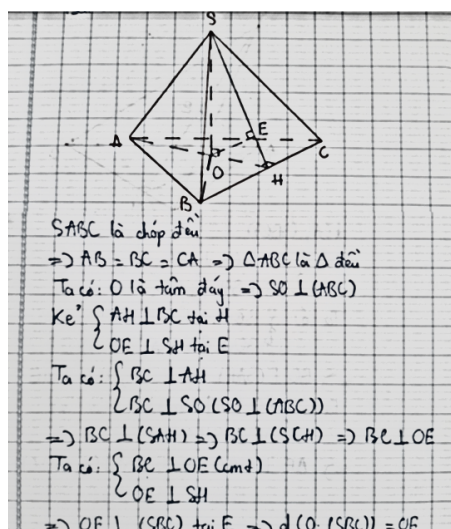 S
A
E
C
O
H
B
SABC là chóp đều
=> AB = BC = CA => ΔABC là Δ đều
Ta có: O là tâm đáy => SO ⊥ (ABC)
Kẻ { AH ⊥ BC tại H
OE ⊥ SH tại E
Ta có: { BC ⊥ AH
BC ⊥ SO (SO ⊥ (ABC))
=> BC ⊥ (SAH) => BC ⊥ (SCH) => BC ⊥ OE
Ta có: { BC ⊥ OE (cmt)
OE ⊥ SH
=> OE ⊥ (SBC) tại E => d(O, (SBC)) = OE